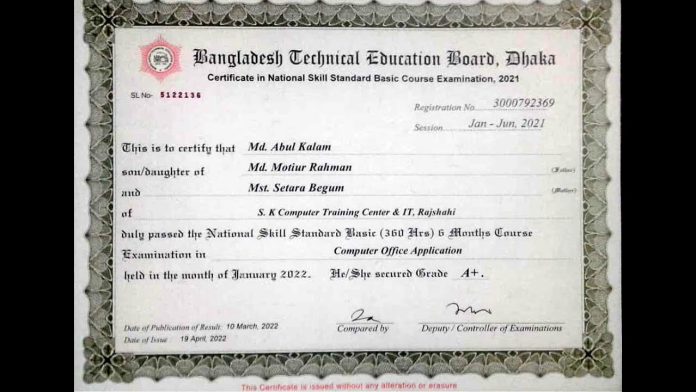 Bangladesh Technical Education Board, Dhaka
Certificate in National Skill Standard Basic Course Examination, 2021
SL No- 5122136
Registration No. 3000792369
Session Jan - Jun, 2021
This is to certify that Md. Abul Kalam
son/daughter of Md. Motiur Rahman (Father)
and Mst. Setara Begum (Mother)
of S. K Computer Training Center & IT, Rajshahi
duly passed the National Skill Standard Basic (360 Hrs) 6 Months Course
Examination in Computer Office Application
held in the month of January 2022. He/She secured Grade A+.
Date of Publication of Result: 10 March, 2022
Compared by
Deputy / Controller of Examinations
Date of Issue 19 April, 2022
This Certificate is issued without any alteration or erasure